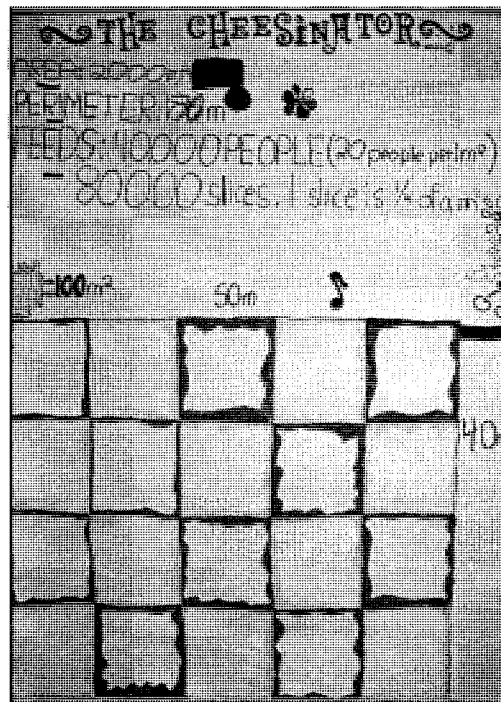 THE CHEESINATOR
AREA: 2000m
PERIMETER: 180m
FEEDS: 40000 PEOPLE (20 people per 1m²)
- 80000 slices. 1 slice is ¼ of a m
=100m²
50m
40